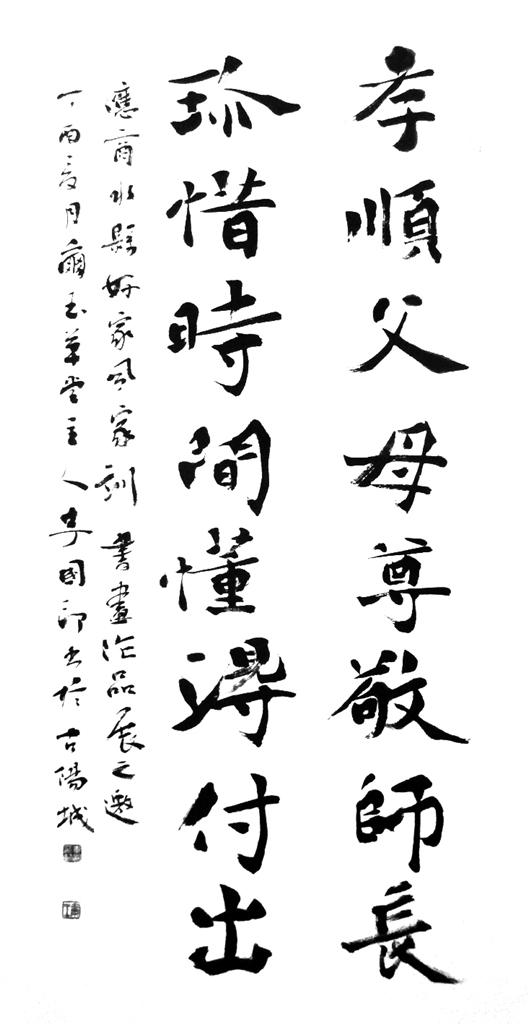 孝順父母尊敬師長
珍惜時間懂得付出
應商水縣好家風家訓書畫作品展之邀
丁酉夏月爾玉草堂主人李國印書於古陽城